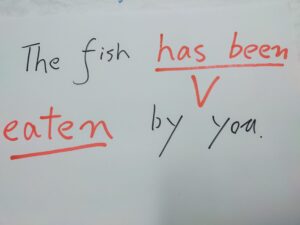 The fish has been
V
eaten by you.